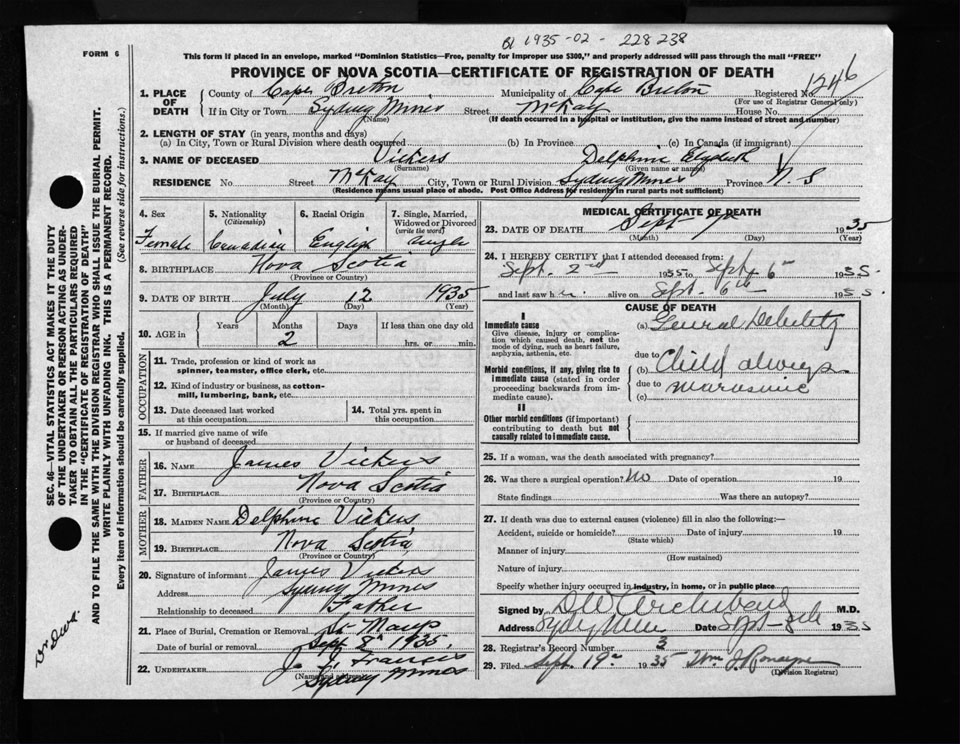 1935-02-228238
FORM 6
This form if placed in an envelope, marked "Dominion Statistics—Free, penalty for improper use $300," and properly addressed will pass through the mail "FREE"
PROVINCE OF NOVA SCOTIA—CERTIFICATE OF REGISTRATION OF DEATH
1246
1. PLACE OF DEATH
County of Cape Breton Municipality of Cape Breton Registered No.
(For use of Registrar General only)
If in City or Town Sydney Mines Street McKay House No.
(Name) (If death occurred in a hospital or institution, give the name instead of street and number)
2. LENGTH OF STAY (in years, months and days)
(a) In City, Town or Rural Division where death occurred (b) In Province (c) In Canada (if immigrant)
3. NAME OF DECEASED Vickers Delphine
(Surname) (Given name or names)
RESIDENCE No. Street McKay City, Town or Rural Division Sydney Mines Province N. S
(Residence means usual place of abode. Post Office Address for residents in rural parts not sufficient)
4. Sex Female
5. Nationality (Citizenship) Canadian
6. Racial Origin English
7. Single, Married, Widowed or Divorced (write the word) single
8. BIRTHPLACE Nova Scotia
(Province or Country)
9. DATE OF BIRTH July 12 1935
(Month) (Day) (Year)
10. AGE in Years Months Days If less than one day old
2 hrs. or min.
OCCUPATION
11. Trade, profession or kind of work as spinner, teamster, office clerk, etc.
12. Kind of industry or business, as cotton-mill, lumbering, bank, etc.
13. Date deceased last worked at this occupation
14. Total yrs. spent in this occupation
15. If married give name of wife or husband of deceased
FATHER
16. NAME James Vickers
17. BIRTHPLACE Nova Scotia
(Province or Country)
MOTHER
18. MAIDEN NAME Delphine Vickers
19. BIRTHPLACE Nova Scotia
(Province or Country)
20. Signature of informant James Vickers
Address Sydney Mines
Relationship to deceased Father
21. Place of Burial, Cremation or Removal
Date of burial or removal Sept 8th 1935
22. UNDERTAKER J. J. Francis
(Name and address) Sydney Mines
MEDICAL CERTIFICATE OF DEATH
23. DATE OF DEATH Sept 7th 1935
(Month) (Day) (Year)
24. I HEREBY CERTIFY that I attended deceased from:
Sept. 2nd 1935 to Sept 6th 1935.
and last saw her alive on Sept. 6th 1935.
CAUSE OF DEATH
I
Immediate cause
Give disease, injury or complication which caused death, not the mode of dying, such as heart failure, asphyxia, asthenia, etc.
(a) General Debility
due to
Morbid conditions, if any, giving rise to immediate cause (stated in order proceeding backwards from immediate cause).
(b) Child always
due to
(c) marasmic
II
Other morbid conditions (if important) contributing to death but not causally related to immediate cause.
25. If a woman, was the death associated with pregnancy?
26. Was there a surgical operation? No Date of operation 19
State findings Was there an autopsy?
27. If death was due to external causes (violence) fill in also the following:—
Accident, suicide or homicide? Date of injury 19
(State which)
Manner of injury
(How sustained)
Nature of injury
Specify whether injury occurred in industry, in home, or in public place
Signed by D W Archibald M.D.
Address Sydney Mines Date Sept 1935
28. Registrar's Record Number 3
29. Filed Sept. 19th 1935 Wm J.
(Division Registrar)
SEC. 46—VITAL STATISTICS ACT MAKES IT THE DUTY
OF THE UNDERTAKER OR PERSON ACTING AS UNDER-
TAKER TO OBTAIN ALL THE PARTICULARS REQUIRED
IN THE "CERTIFICATE OF REGISTRATION OF DEATH"
AND TO FILE THE SAME WITH THE DIVISION REGISTRAR WHO SHALL ISSUE THE BURIAL PERMIT.
WRITE PLAINLY WITH UNFADING INK. THIS IS A PERMANENT RECORD.
Every item of information should be carefully supplied. (See reverse side for instructions.)